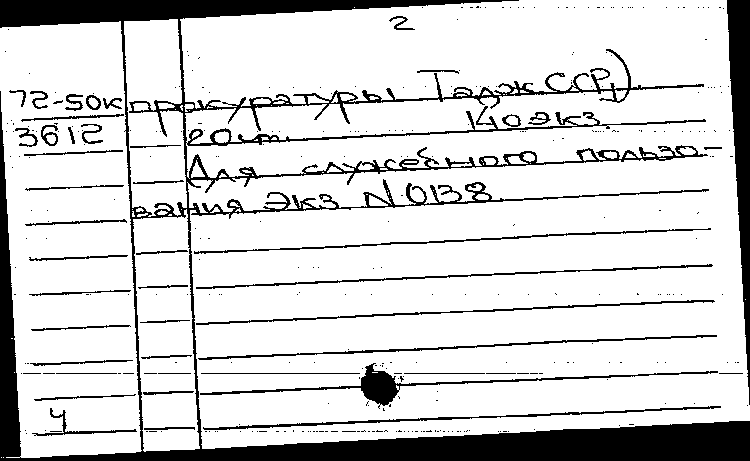 2
72-50к прокуратуры Тадж ССР).
3612 20 ст. 140 экз.
Для служебного пользо-
вания Экз N 0138
4